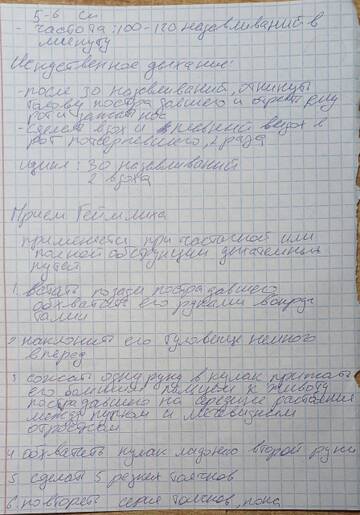 5-6 см
- частота: 100-120 надавливаний в
минуту
Искуственное дыхание:
- после 30 надавливаний, откинуть
голову пострадавшего и открть ему
рот и зажать нос
- сделать вдох и выдох в
рот потерпевшего, 2 раза
цикл: 30 надавливаний
2 вдоха
Прием Геймлиха
применяется при частичной или
полной обструкции дыхательных
путей
1. встать позади пострадавшего
обхватить его руками вокруг
талии
2 наклонить его туловище немного
вперед
3 сожать одну руку в кулак прижать
его большим пальцем к животу
пострадавшего на середине расстояния
между пупком и мечевидным
отростком
4 обхватить кулак ладонью второй руки
5 сделать 5 резких толчков
6. повторять серия толчков, пока